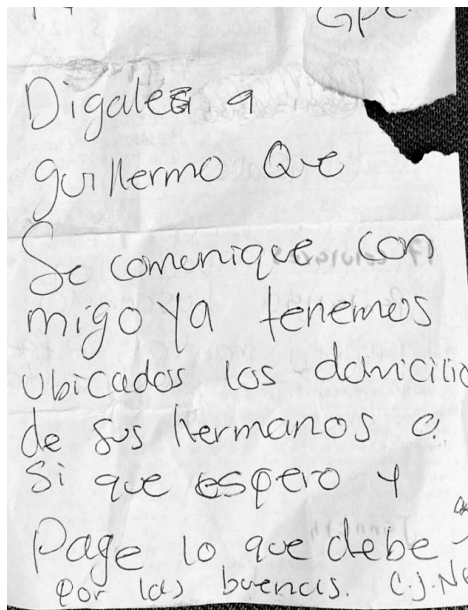 Gpe.
Digales a
guillermo Que
Se comunique con
migo ya tenemos
Ubicados los domicilio
de sus hermanos o.
Si que espero y
Page lo que debe
por las buenas. C.J.N